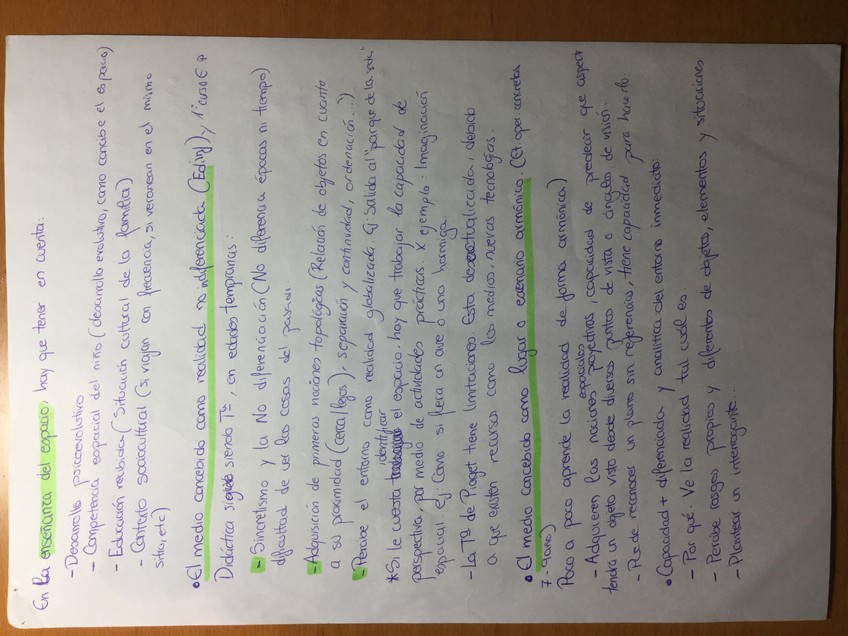 En la enseñanza del espacio, hay que tener en cuenta:
- Desarrollo psicoevolutivo
- Competencia espacial del niño (desarrollo evolutivo, como concibe el espacio)
- Educación recibida (Situación cultural de la familia)
- Contexto sociocultural (si viajan con frecuencia, si veranean en el mismo
sitio, etc)
• El medio concebido como realidad no indiferenciada (Ed inf) y 1er curso E.P
Didáctica siendo Tª, en edades tempranas:
- Sincretismo y la No diferenciación (No diferencia épocas ni tiempo)
dificultad de ver las cosas del pasado
- Adquisición de primeras nociones topológicas (Relación de objetos en cuanto
a su proximidad (cerca/lejos), separación y continuidad, ordenación...)
- Percibe el entorno como realidad globalizada. Ej: Salida al "parque de la
identificar
* Si le cuesta el espacio hay que trabajar la capacidad de
perspectiva por medio de actividades prácticas. X ejemplo: Imaginación
espacial ej Como si fuera un ave o una hormiga.
- La Tª de Piaget tiene limitaciones. Esta desactualizada, debido
a que existen recursos como los medios, nuevas tecnologías.
• El medio concebido como lugar o escenario armónico. (Et. oper. concretas
7-9 años)
Poco a poco aprende la realidad de forma armónica)
espaciales
- Adquieren las nociones proyectivas, capacidad de predecir que aspecto
tendrá un objeto visto desde diversos puntos de vista o ángulos de visión.
- Puede reconocer un plano sin referencias, tiene capacidad para hacerlo.
• Capacidad + diferenciada y analítica del entorno inmediato:
- Por qué. Ve la realidad tal cual es.
- Percibe rasgos propios y diferentes de objetos, elementos y situaciones
- Plantear un interrogante...